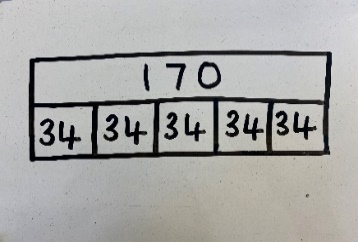 170
34 34 34 34 34